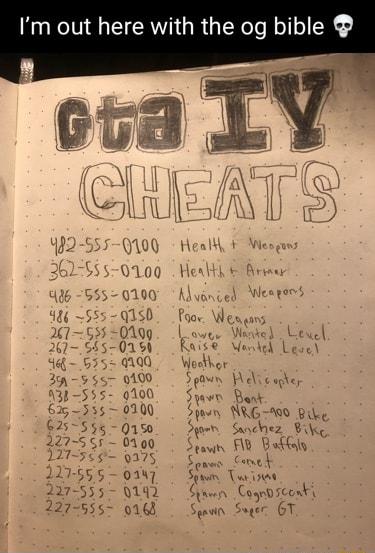 I'm out here with the og bible 💀
Gta IV
CHEATS
482-555-0100 Health + Weapons
362-555-0100 Health + Armor
486-555-0100 Advanced Weapons
486-555-0150 Poor Weapons
267-555-0100 Lower Wanted Level
267-555-0150 Raise Wanted Level
468-555-0100 Weather
359-555-0100 Spawn Helicopter
938-555-0100 Spawn Boat
625-555-0100 Spawn NRG-900 Bike
625-555-0150 Spawn Sanchez Bike
227-555-0100 Spawn FIB Buffalo
227-555-0175 Spawn Comet
227-555-0147 Spawn Turismo
227-555-0142 Spawn Cognoscenti
227-555-0168 Spawn Super GT